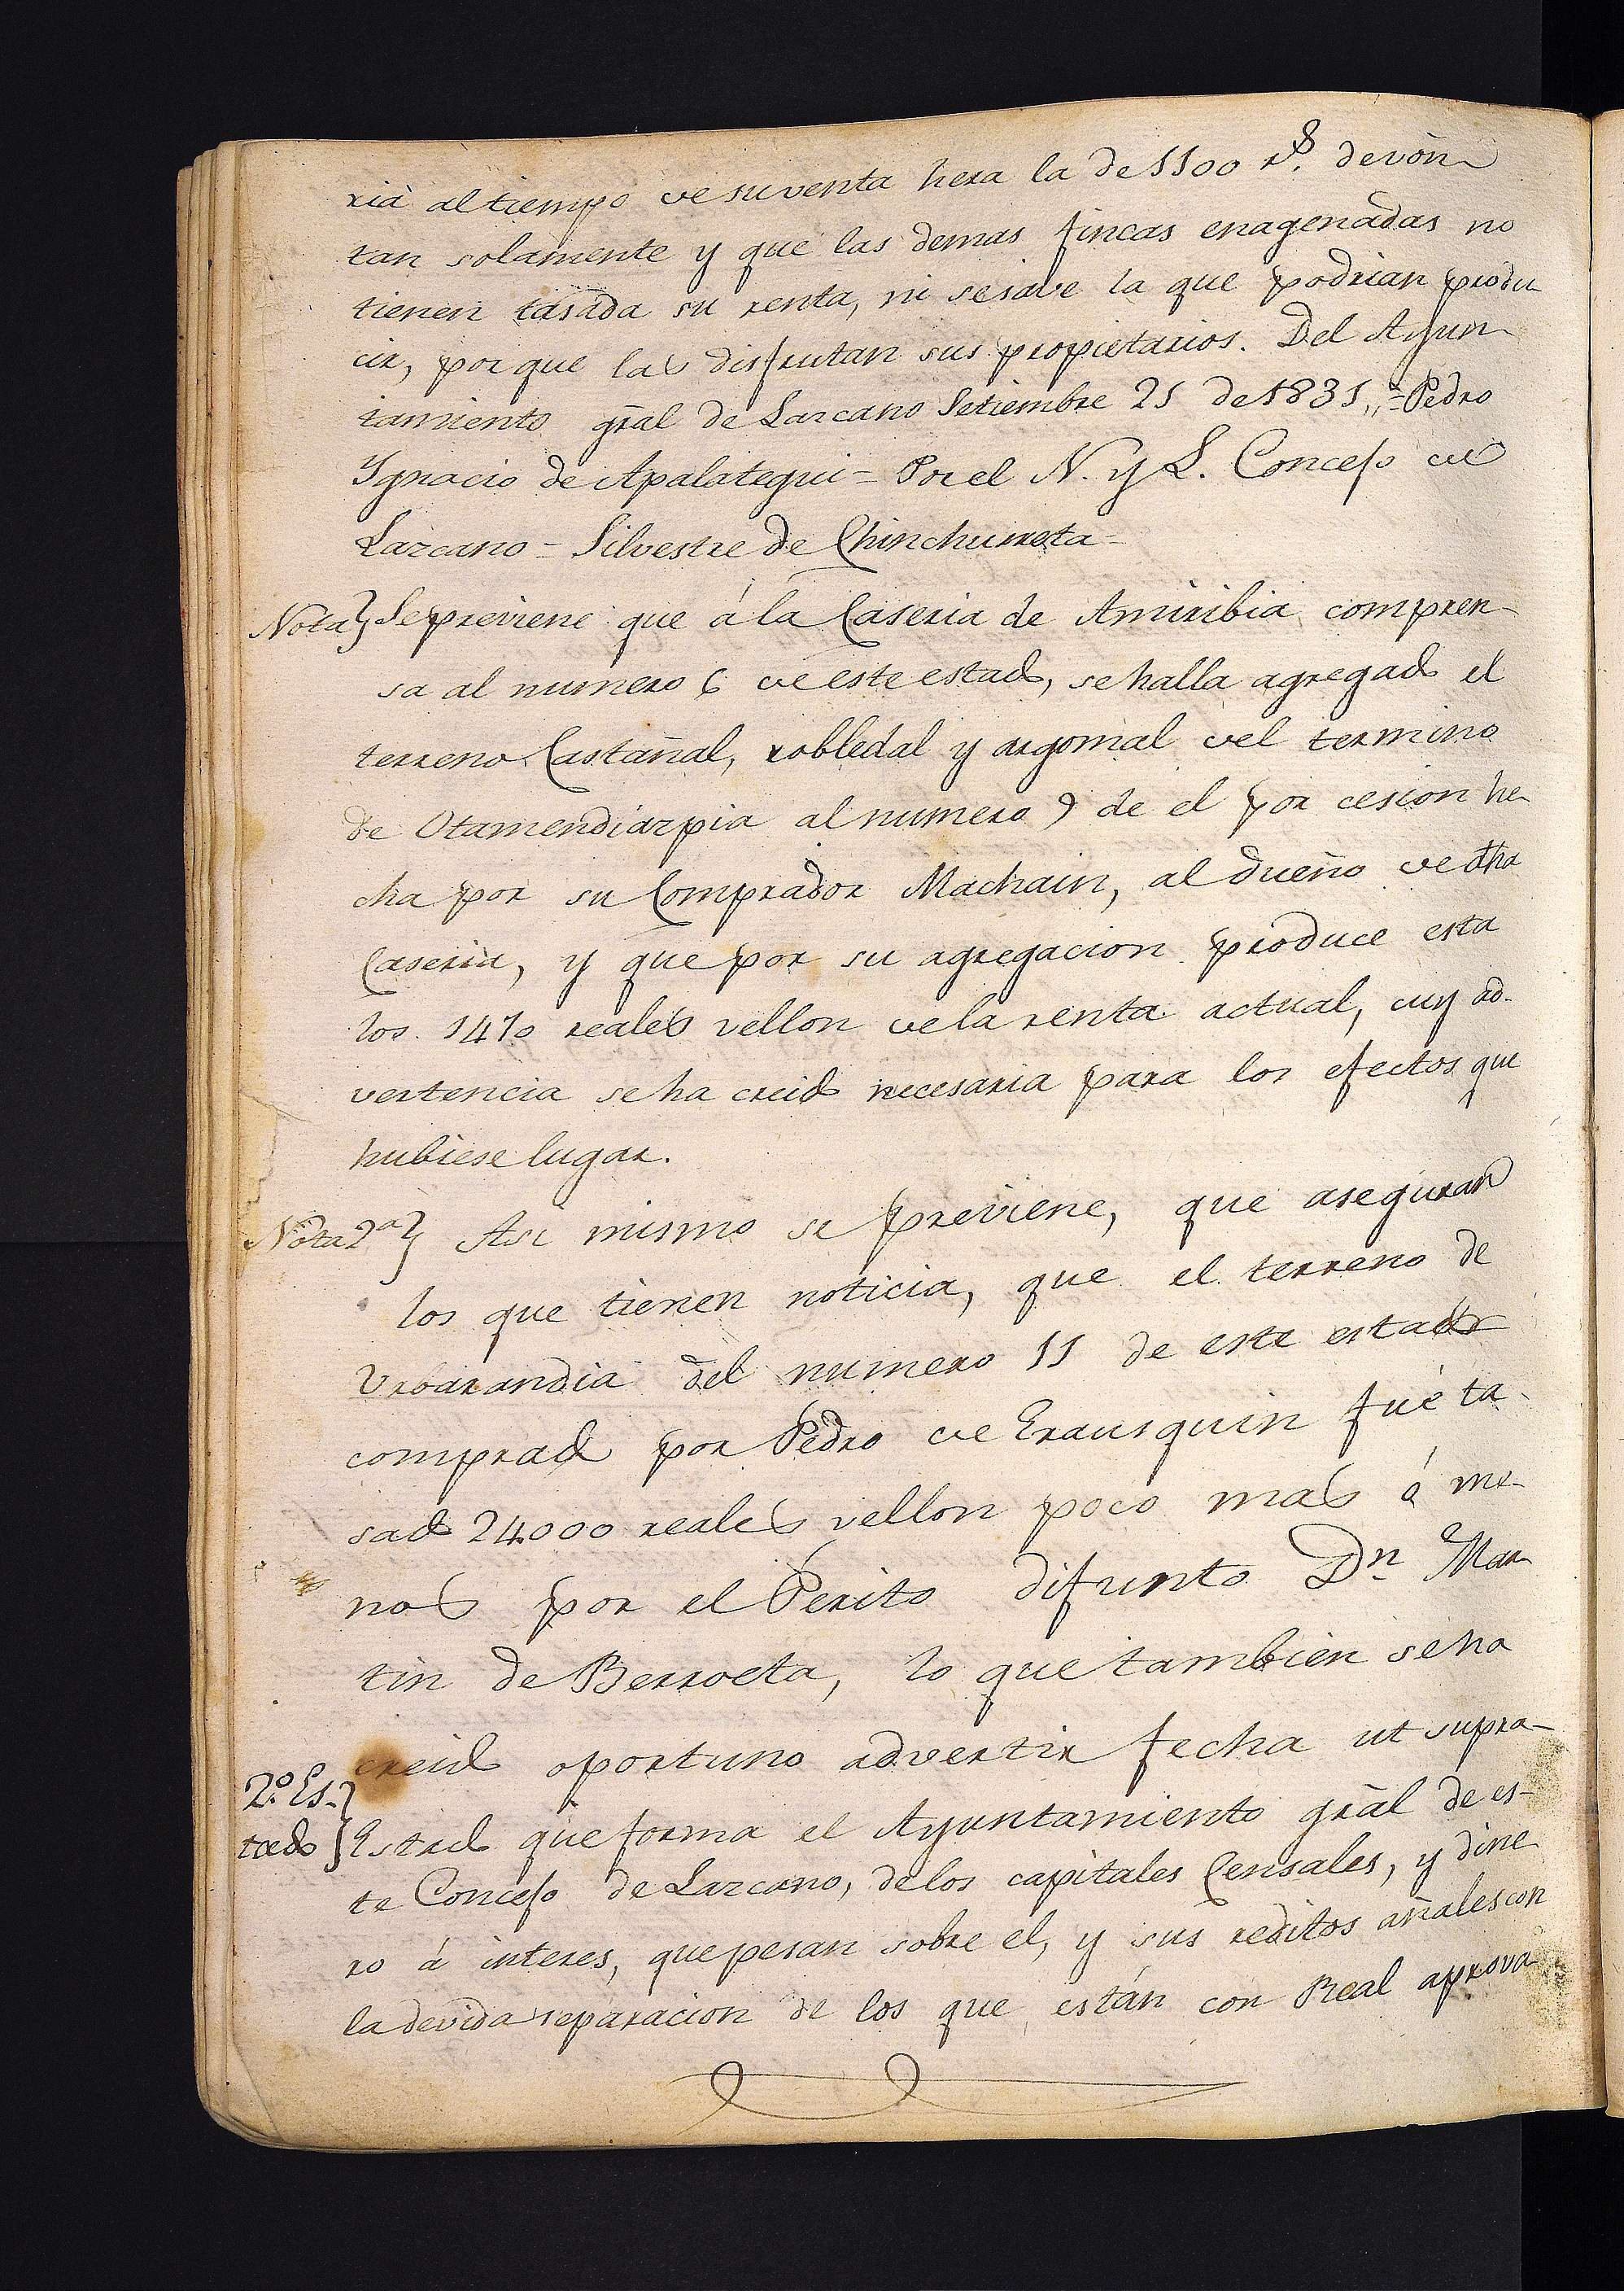 ria al tiempo de su venta hera la de 1100 r.s de vòn
tan solamente y que las demas fincas enagenadas no
tienen tasada su renta, ni se save la que podrian produ
cir, por que las disfrutan sus propietarios. Del Ayun
tamiento gral de Lazcano Setiembre 21 de 1831,, = Pedro
Ygnacio de Apalategui = Por el N. y L. Concejo de
Lazcano = Silvestre de Chinchurreta =
Nota} Se previene que á la Caseria de Amiribia compren-
sa al numero 6 de este estado, se halla agregado el
terreno Castañal, robledal y argomal del termino
de Otamendiazpia al numero 9 de el por cesion he-
cha por su Comprador Machain, al dueño de dha
Caseria, y que por su agregacion produce esta
los 1410 reales vellon de la renta actual, cuy ad-
vertencia se ha creido necesaria para los efectos que
hubiese lugar.
Nota 2ª} Asi mismo se previene, que aseguran
los que tienen noticia, que el terreno de
Urbarandia del numero 11 de este estado
comprado por Pedro de Erausquin fué ta-
sado 24.000 reales vellon poco mas ó me-
nos por el Perito difunto Dn. Mar
tin de Berroeta, lo que tambien se ha
creido oportuno advertir fecha ut supra-
2º. Es-
tado} Estado que forma el Ayuntamiento gral de es-
te Concejo de Lazcano, de los capitales Censales, y dine
ro á interes, que pesan sobre el, y sus reditos añales con
la devida separacion de los que están con Real aprova